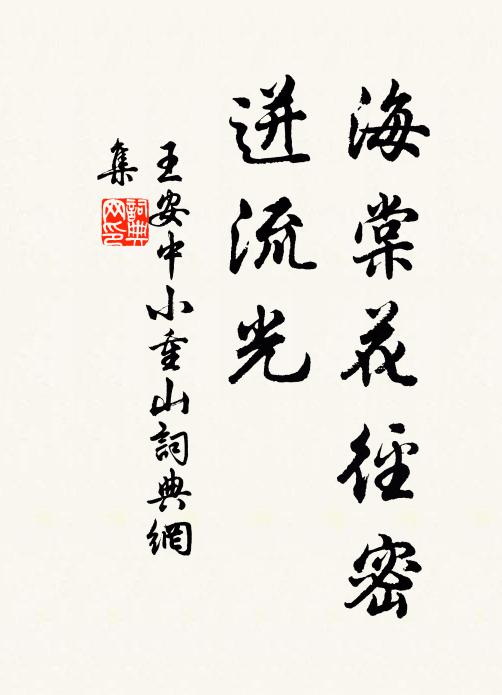 海棠花徑密
迸流光
王安中小重山詞典網
集
詞典網印